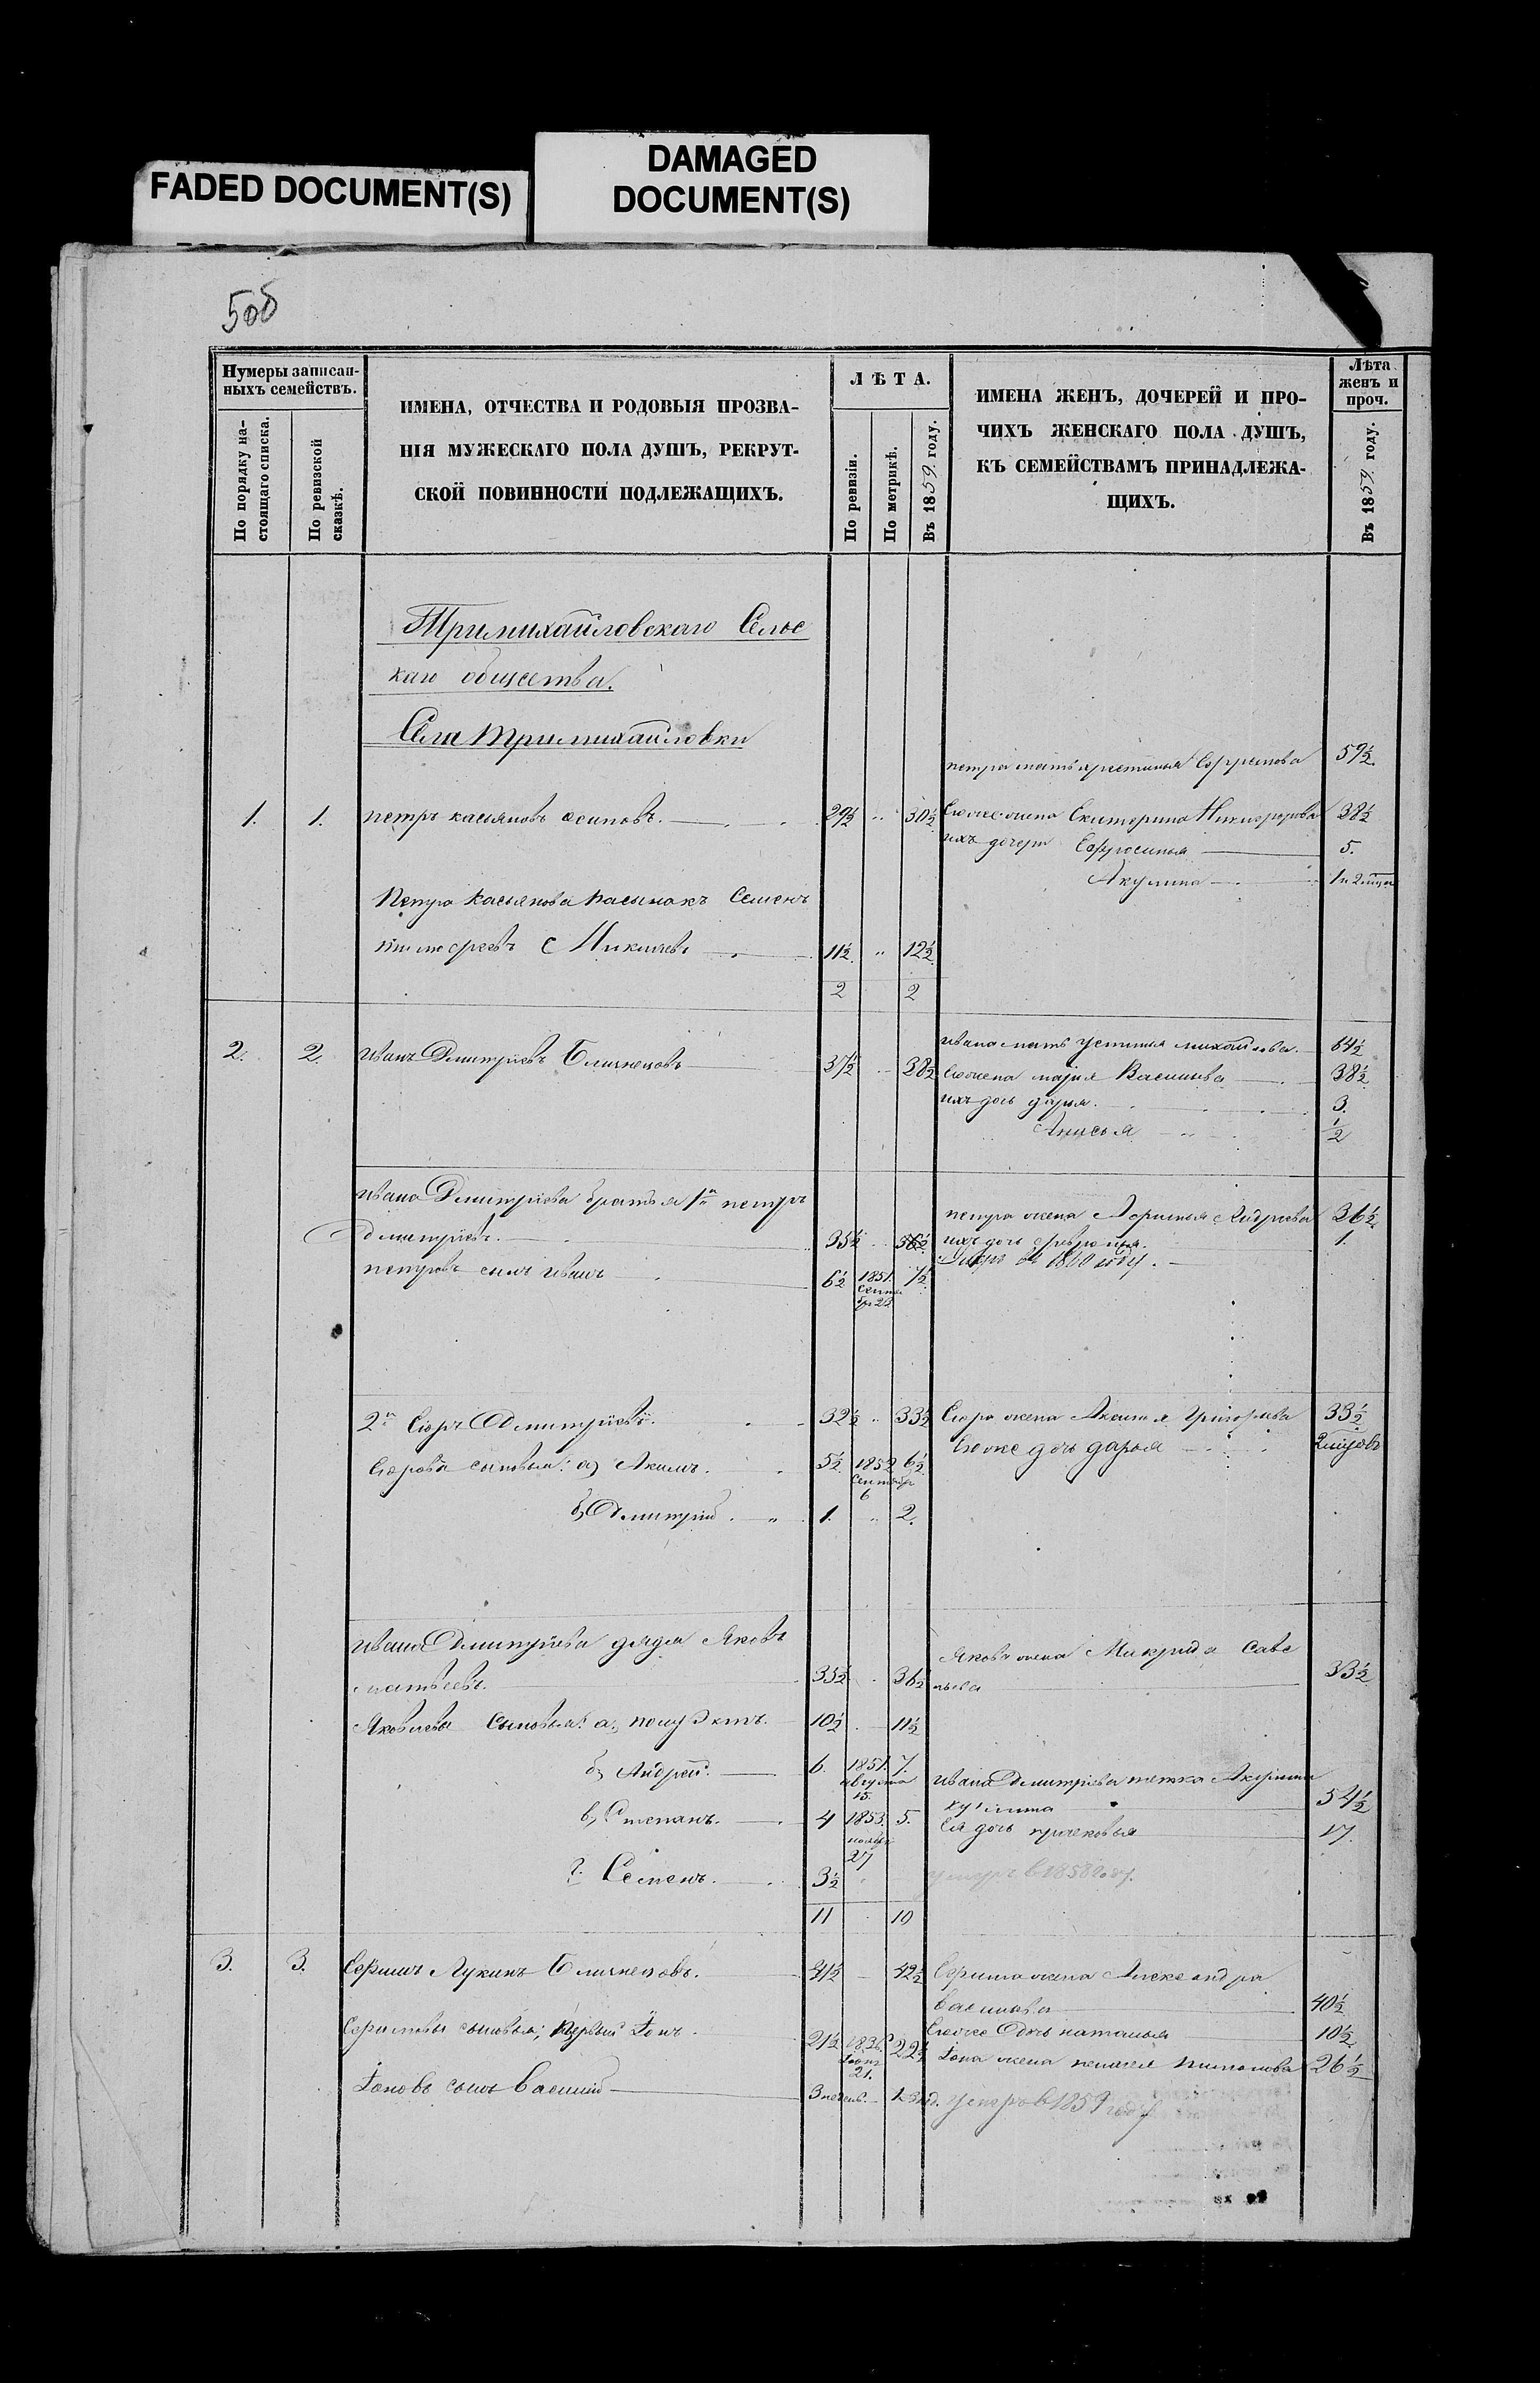 FADED DOCUMENT(S)
DAMAGED
DOCUMENT(S)
506
Нумеры записан-
ныхъ семействъ.
По порядку на-
стоящаго списка.
По ревизской
сказкѣ.
ИМЕНА, ОТЧЕСТВА И РОДОВЫЯ ПРОЗВА-
НІЯ МУЖЕСКАГО ПОЛА ДУШЪ, РЕКРУТ-
СКОЙ ПОВИННОСТИ ПОДЛЕЖАЩИХЪ.
ЛѢТА.
По ревизіи.
По метрикѣ.
Въ 1859 году.
ИМЕНА ЖЕНЪ, ДОЧЕРЕЙ И ПРО-
ЧИХЪ ЖЕНСКАГО ПОЛА ДУШЪ,
КЪ СЕМЕЙСТВАМЪ ПРИНАДЛЕЖА-
ЩИХЪ.
Лѣта
женъ и
проч.
Въ 1859 году.
Тримихайловскаго Сельс
каго общества.
Села Тримихайловки
петра мать Христинья Ефремова 59½
1. 1. петръ касьяновъ осиповъ. 29½ " 30½ Его же жена Екатерина Никифорова 38½
ихъ дочери Ефросинья 5.
Акулина 1 и 2 мца
Петра Касьянова пасынокъ Семенъ
11½ " 12½
2 2
ивана мать устинья михайлова. 64½
2. 2. Иванъ Дмитріевъ 37½ 38½ Его жена марья Васильева 38½
ихъ дочь дарья. 3.
Анисья ½
ивана Дмитріева братья 1й петръ
петра жена Андреева 36½
дмитріевъ. 35½ 36½ ихъ дочь 1.
въ 1860 году.
петровъ сынъ иванъ 6½ 1851. 7½
Сентя
бр 22
2й Егоръ Дмитріевъ. 32½ " 33½ Егора жена Аксинья Григорьева 33½
Его же дочь дарья 2 мцовъ
Егорова сыновья: а) Акимъ. 5½ 1852 6½
Сентябр
6
б) Дмитрій. " 1. " 2.
ивана Дмитріева дядя Яковъ
Якова жена Макрида Саве
матвѣевъ. 35½ 36½ льева 33½
Яковлевы Сыновья: а, 10½ 11½
б, Андрей. 6. 1851. 7.
августа
15.
ивана Дмитріева тетка Акулина
54½
в, Степанъ. 4 1853. 5. Ея дочь прасковья 17.
ноябр
27
г. Семенъ. 3½ умеръ в 1858 году.
11 10
3. 3. Ефимъ Лукинъ 41½ 42½ Ефима жена Александра
васильева 40½
Ефимовы сыновья; Первый Іонъ. 21½ 1836. 22½ Его же Дочь наталья 10½
21. Іона жена пелагея 26½
Іоновъ сынъ Василій умеръ в 1859 году